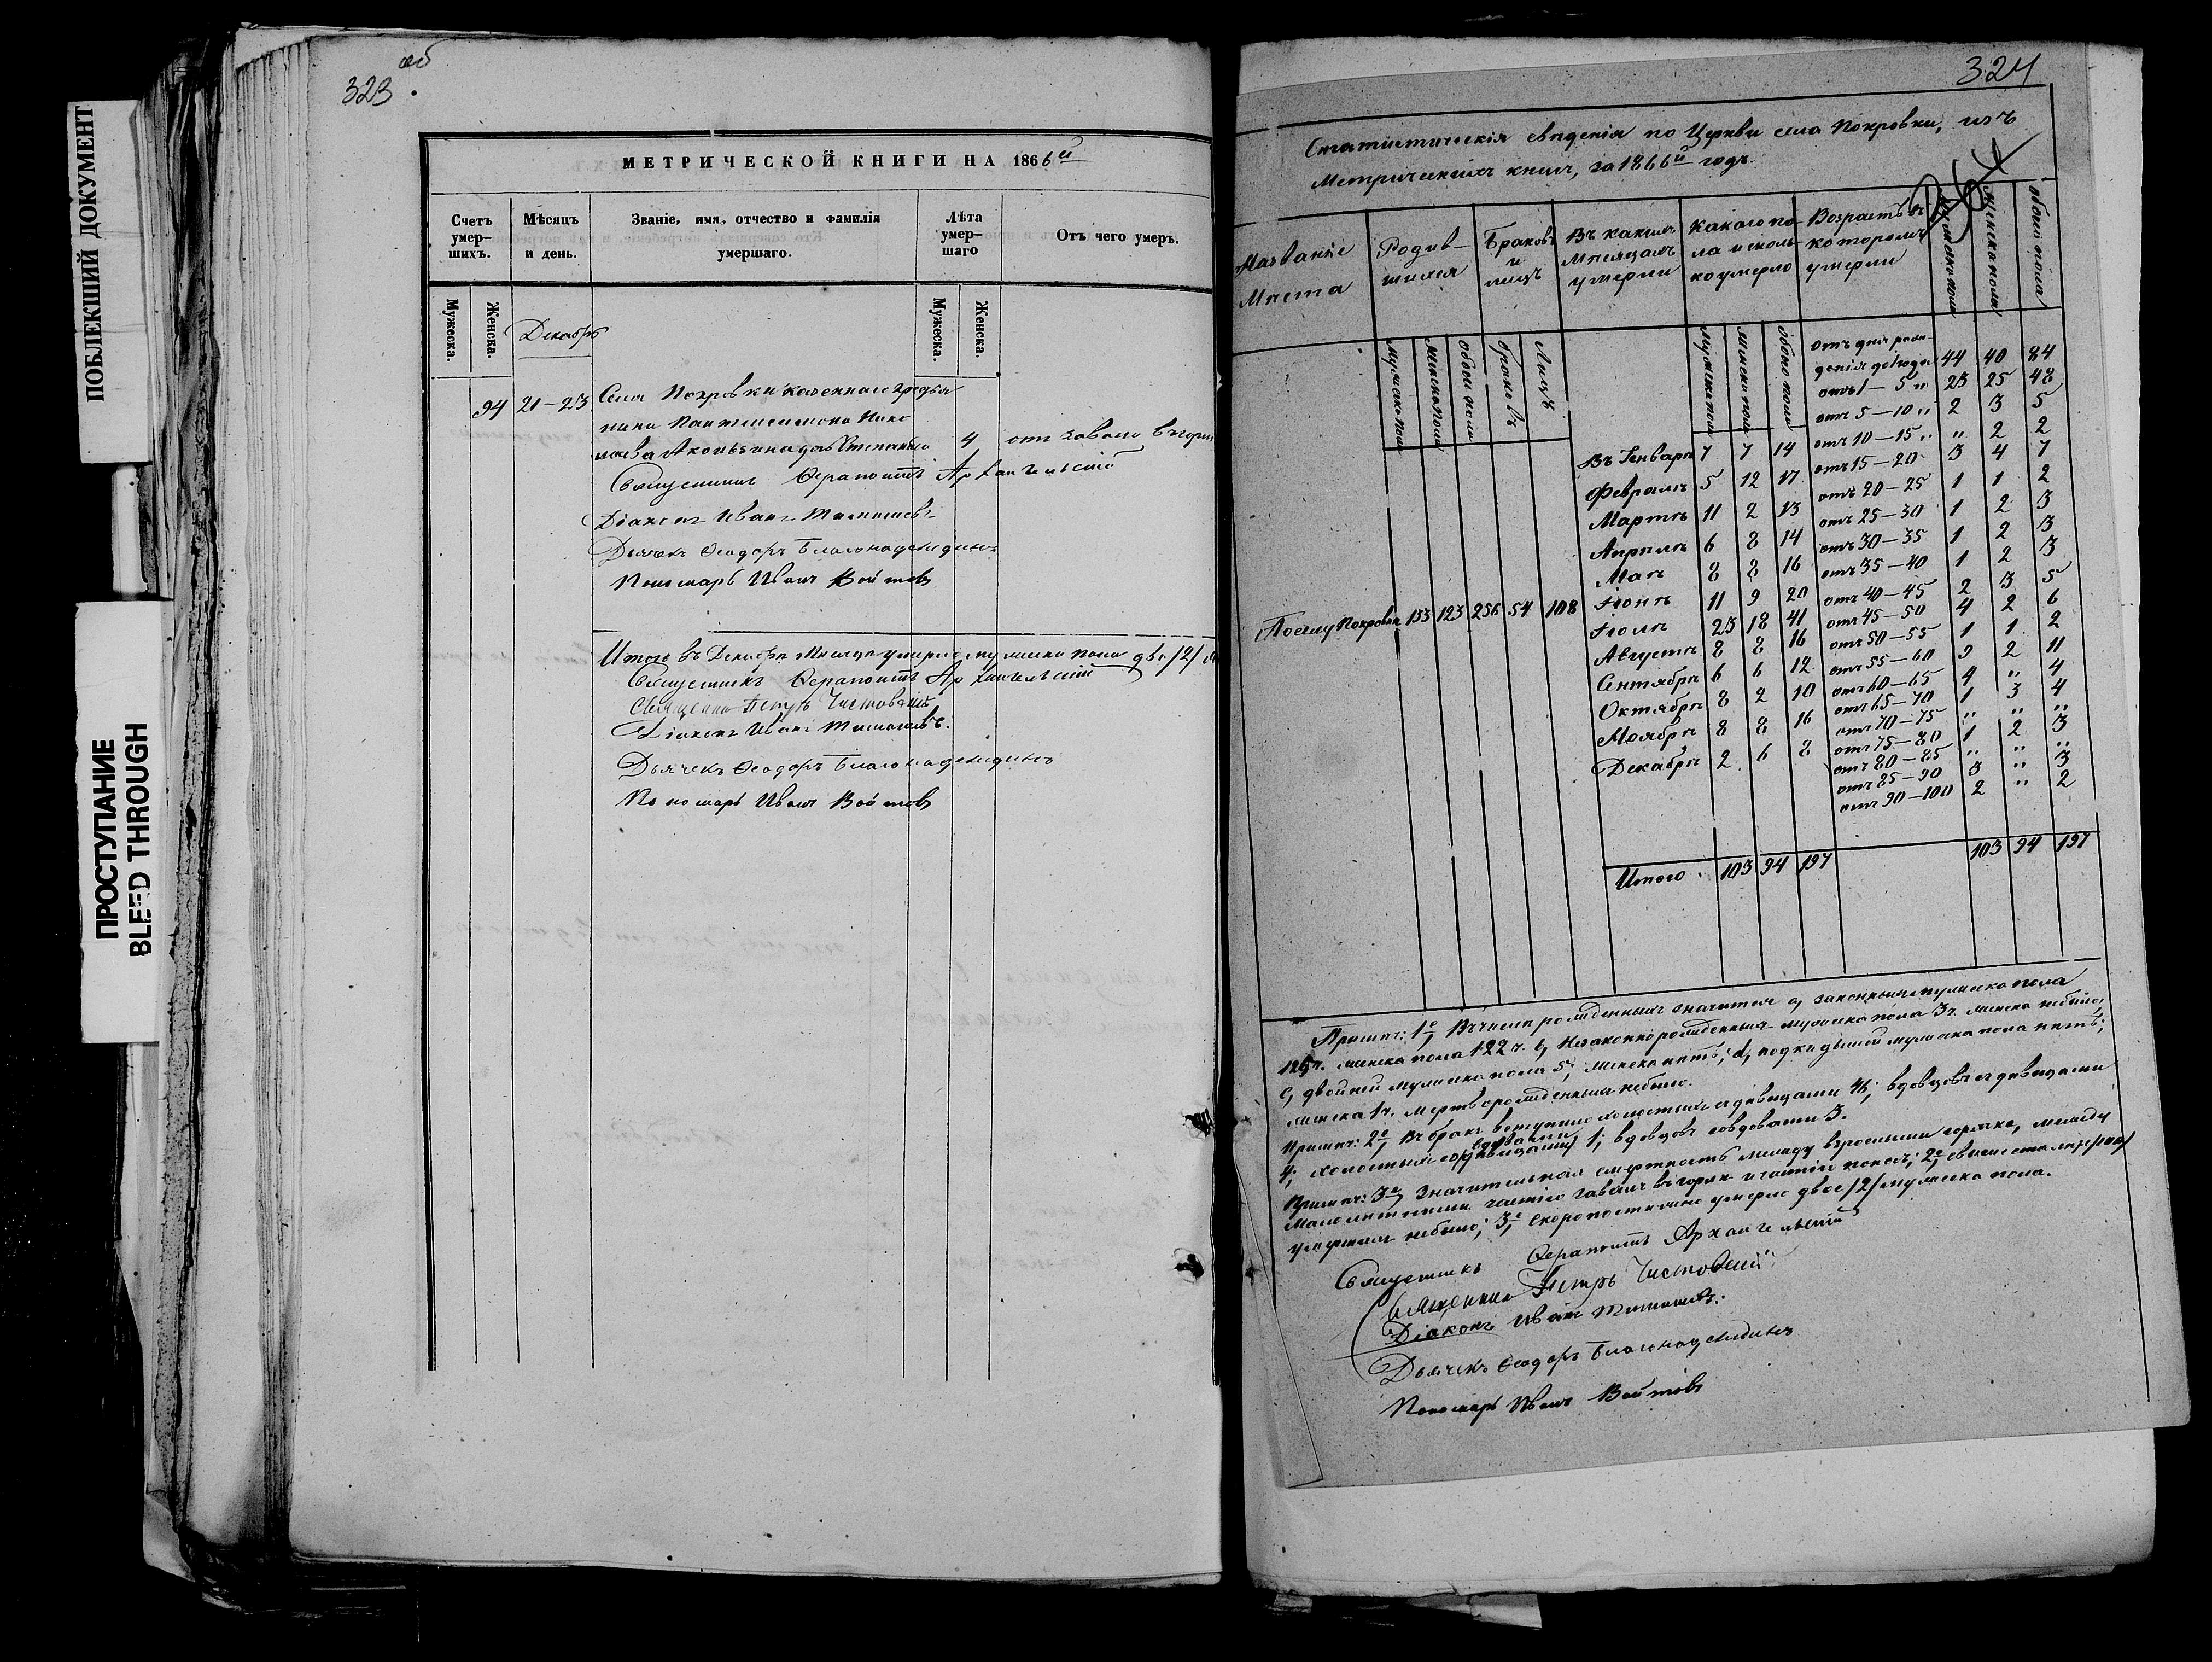 ПОБЛЕКШИЙ ДОКУМЕНТ
ПРОСТУПАНИЕ
BLEED THROUGH
323 об
МЕТРИЧЕСКОЙ КНИГИ НА 1866й
Счетъ умер- шихъ.
Мѣсяцъ и день.
Званіе, имя, отчество и фамилія умершаго.
Лѣта умер- шаго
Отъ чего умеръ.
Мужеска.
Женска.
Декабрь
Мужеска.
Женска.
94 21-23 Села Покровки казеннаго крестья
нина Пантелеимона Нико
лаева дочь Степанида 4 отъ завала въ горлѣ
Священникъ Ѳерапонтъ Архангельскій
Діаконъ Иванъ Тимошевъ
Дьячекъ Ѳеодоръ Благонадеждинъ
Пономарь Иванъ Войтовъ
Итого въ Декабрѣ Мѣсяцѣ умерло мужеска пола два /2/
Священникъ Ѳерапонтъ Архангельскій
Священникъ Петръ Чистовскій
Діаконъ Иванъ Тимошевъ.
Дьячекъ Ѳеодоръ Благонадеждинъ
Пономарь Иванъ Войтовъ
324
Статистическія свѣденія по Церкви села Покровки, изъ
Метрическихъ книгъ, за 1866й годъ.
Названіе Мѣста
Родив- шихся
Браковъ и лицъ
Въ какихъ Мѣсяцахъ умерли
Какаго по- ла и сколь- ко умерло
Возрастъ въ которомъ умерли
Мужеска пола
Женска пола
Обоего пола
Мужеска пола
Женска пола
Обоего пола
Браковъ
Лицъ
Мужеска пола
Женска пола
Обоего пола
отъ дня рож-
денія до 1 года 44 40 84
отъ 1 — 5 " 23 25 48
отъ 5 — 10 " 2 3 5
отъ 10 — 15 " " 2 2
отъ 15 — 20 3 4 7
отъ 20 — 25 1 1 2
отъ 25 — 30 1 2 3
отъ 30 — 35 1 2 3
отъ 35 — 40 1 2 3
отъ 40 — 45 2 3 5
отъ 45 — 50 4 2 6
отъ 50 — 55 1 1 2
отъ 55 — 60 9 2 11
отъ 60 — 65 4 " 4
отъ 65 — 70 1 3 4
отъ 70 — 75 " " "
отъ 75 — 80 1 2 3
отъ 80 — 85 " " "
отъ 85 — 90 3 " 3
отъ 90 — 100 2 " 2
Въ Генварѣ 7 7 14
Февралѣ 5 12 17
Мартѣ 11 2 13
Апрѣлѣ 6 8 14
Маѣ 8 8 16
Іюнѣ 11 9 20
Іюлѣ 23 18 41
Августѣ 8 8 16
Сентябрѣ 6 6 12
Октябрѣ 8 2 10
Ноябрѣ 8 8 16
Декабрѣ 2 6 8
По селу Покровкѣ 133 123 256 54 108
Итого 103 94 197 103 94 197
Примѣч: 1е, Въ числѣ рожденныхъ значится а, законныхъ мужеска пола
125 ч. женска пола 122 ч. в, Незаконнорожденныхъ мужеска пола 3 ч. женска небыло;
с, двойней мужеска пола 5; женска пять; d, подкидышей мужеска пола пять;
женска 1 ч. мертворожденныхъ небыло.
Примѣч: 2е, Въ бракъ вступило холостыхъ съ дѣвицами 46; вдовцовъ съ дѣвицами
4; холостыхъ со вдовами 1; вдовцовъ со вдовами 3.
Примѣч: 3е, Значительная смертность между взрослыми горячка, между
малолѣтними частію завалъ въ горлѣ и частію поносъ; 2е, свыше ста лѣтъ /100/
умершихъ небыло; 3е, скоропостижно умерло двое /2/ мужеска пола.
Священникъ Ѳерапонтъ Архангельскій
Священникъ Петръ Чистовскій
Діаконъ Иванъ Тимошевъ.
Дьячекъ Ѳеодоръ Благонадеждинъ
Пономарь Иванъ Войтовъ